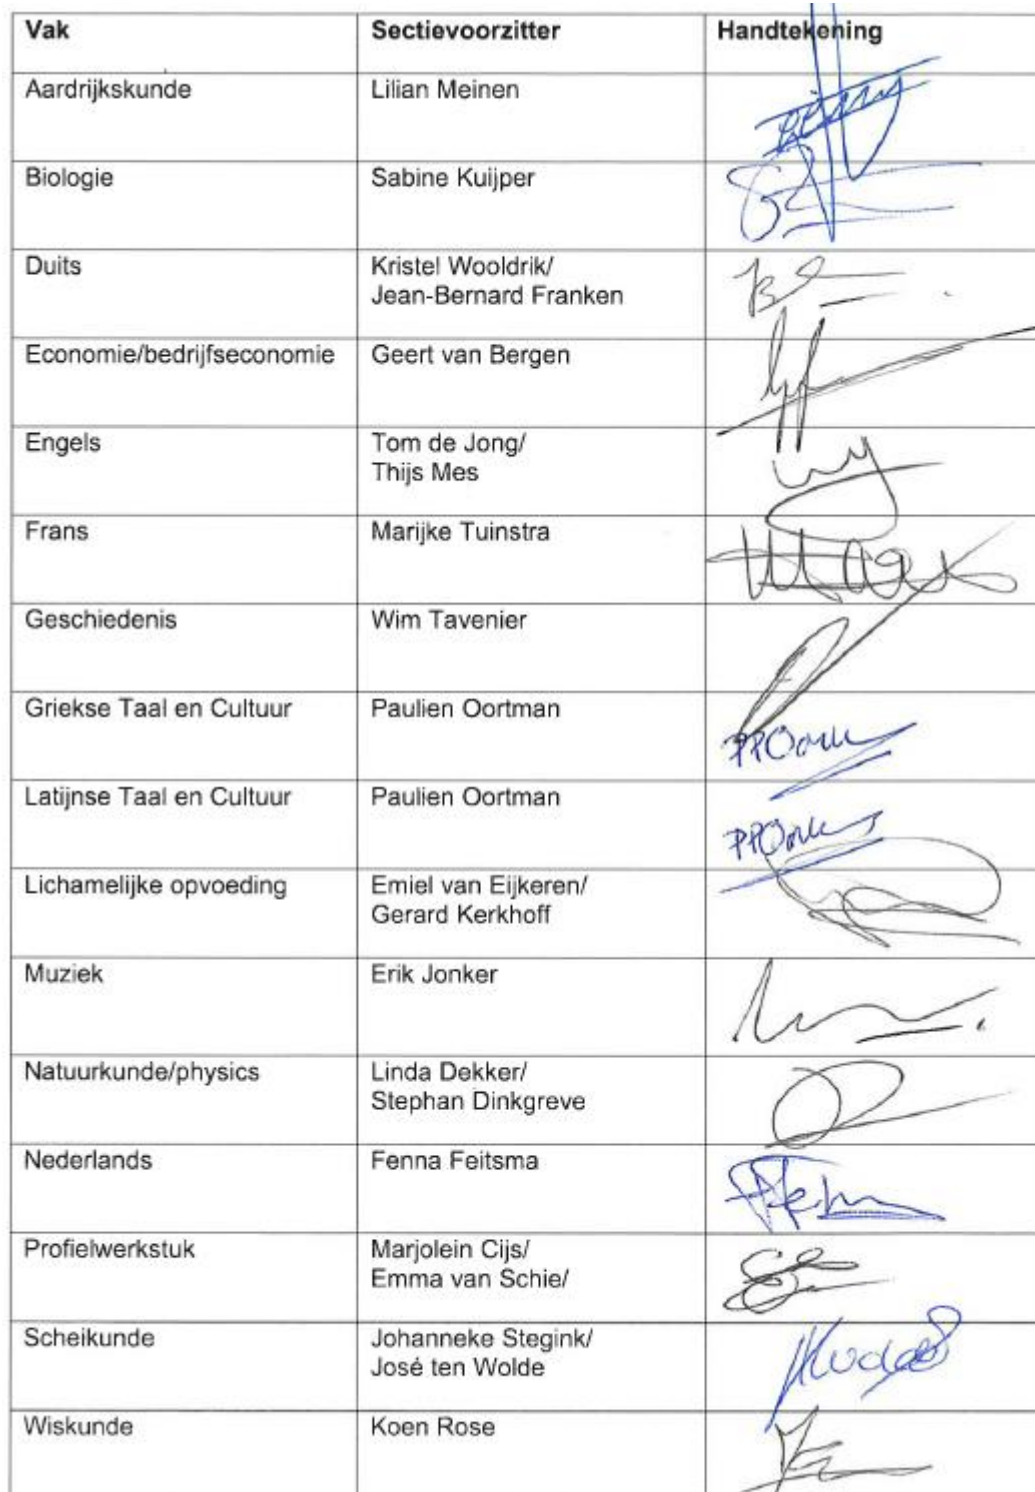 Vak Sectievoorzitter Handtekening
Aardrijkskunde Lilian Meinen
Biologie Sabine Kuijper
Duits Kristel Wooldrik/
Jean-Bernard Franken
Economie/bedrijfseconomie Geert van Bergen
Engels Tom de Jong/
Thijs Mes
Frans Marijke Tuinstra
Geschiedenis Wim Tavenier
Griekse Taal en Cultuur Paulien Oortman
Latijnse Taal en Cultuur Paulien Oortman
Lichamelijke opvoeding Emiel van Eijkeren/
Gerard Kerkhoff
Muziek Erik Jonker
Natuurkunde/physics Linda Dekker/
Stephan Dinkgreve
Nederlands Fenna Feitsma
Profielwerkstuk Marjolein Cijs/
Emma van Schie/
Scheikunde Johanneke Stegink/
José ten Wolde
Wiskunde Koen Rose